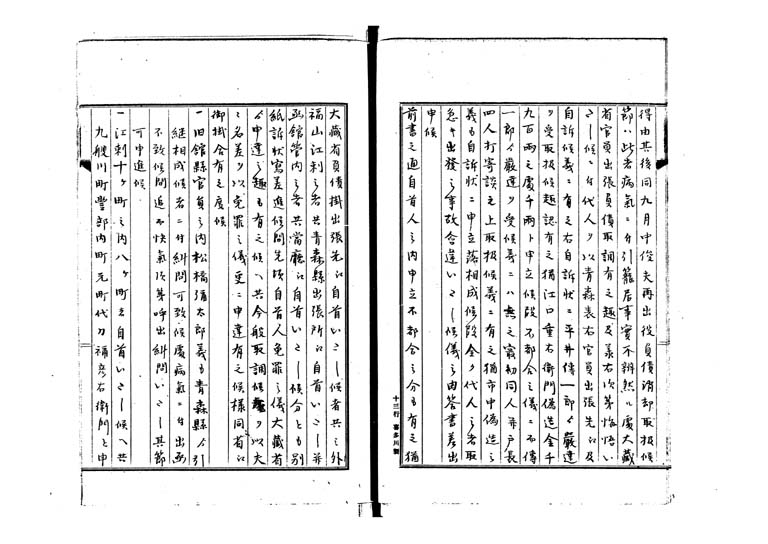 得由其後同九月中俊夫再出役負債消却取扱候
節ハ此者病気ニ付引籠居事実不辨然ル處大藏
省官員出張負債取調有之趣及承右次第悔悟い
さし候ニ付代人ヲ以青森表右官員出張先江及
自訴候義ニ有之右自訴状ニ平井傳一郎ゟ嚴達
ヲ受取扱候趣認有之猶江口重右衛門偽造金千
九百両之處千両ト申立候段不都合之儀ニ而傳
一郎ゟ嚴達ヲ受候義ニハ無之窮初同人并戸長
四人打寄談之上取扱候義ニ有之猶市中偽造之
義も自訴状ニ申立落相成候段全ク代人之者取
急キ出發之事故合違いさし候儀之由答書差出
申候
前書之通自首人之内申立不都合之分も有之猶
十三行 喜多川製
大藏省負債掛出張先江自首いさし候者共之外
福山江刺之者共青森縣出張所江自首いさし并
函館管内之者共當廳江自首いさし候分とも別
紙訴状寫差進候間先頃自首人免罪之儀大藏省
ゟ申達之趣も有之候ヘ共今般取調候廉ヲ以大
之名差ヲ以免罪之儀更ニ申達有之候様同省江
御掛合有之度候
一旧館縣官員之内松橋弥太郎義も青森縣ゟ引
継相成候者ニ付糾問可致候處病気ニ付出函
不致候間追而快気次第呼出糾問いさし其節
可申進候
一江刺十ケ町之内八ケ町は自首いさし候ヘ共
九艘川町豐部内町元町代刀禰彦右衛門と申